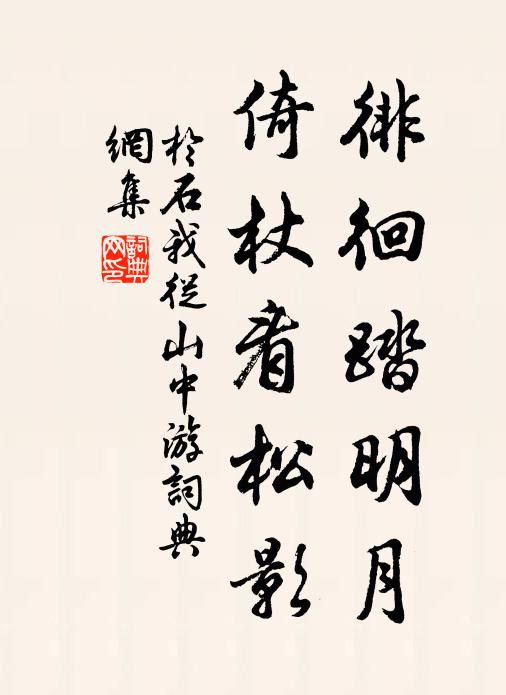 徘徊踏明月
倚杖看松影
於石我從山中游詞典
網集
詞典
網印